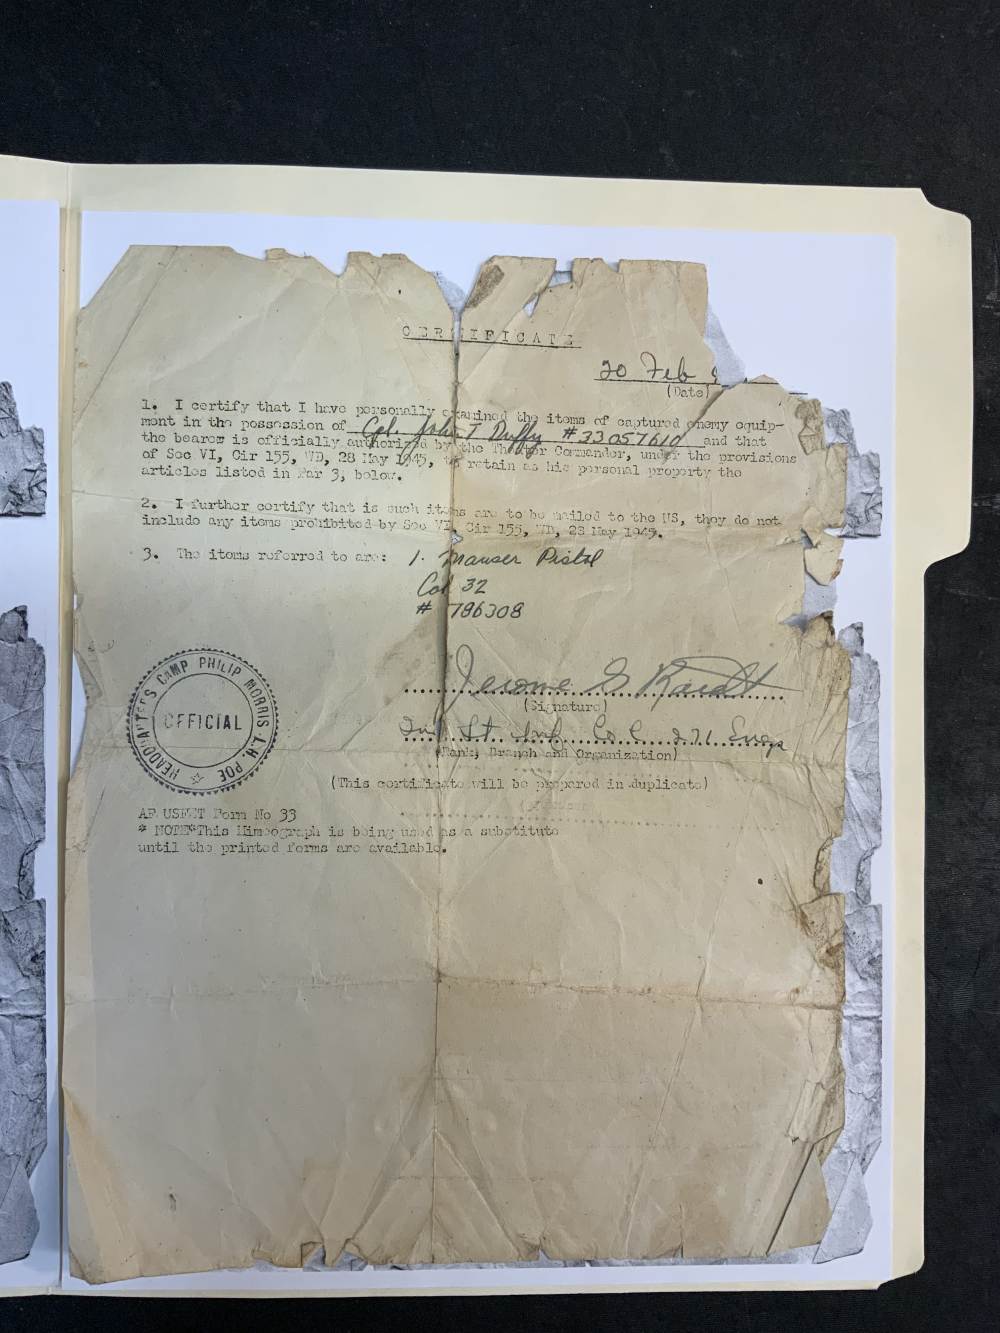 CERTIFICATE
20 Feb
(Date)
1. I certify that I have personally examined the items of captured enemy equip-
ment in the possession of Cpl. John T Duffy #33057610 and that
the bearer is officially authorized by the Theater Commander, under the provisions
of Sec VI, Cir 155, WD, 28 May 1945, to retain as his personal property the
articles listed in Par 3, below.
2. I further certify that is such items are to be mailed to the US, they do not
include any items prohibited by Sec VI, Cir 155, WD, 28 May 1945.
3. The items referred to are: 1. Mauser Pistol
Cal 32
# 786308
HEADQUARTERS CAMP PHILIP MORRIS L.H. POE
OFFICIAL
Jerome G
(Signature)
Lt Inf Co C 271 Engs
(Rank, Branch and Organization)
(This certificate will be prepared in duplicate)
AF USFET Form No 33
* NOTE*This Mimeograph is being used as a substitute
until the printed forms are available.